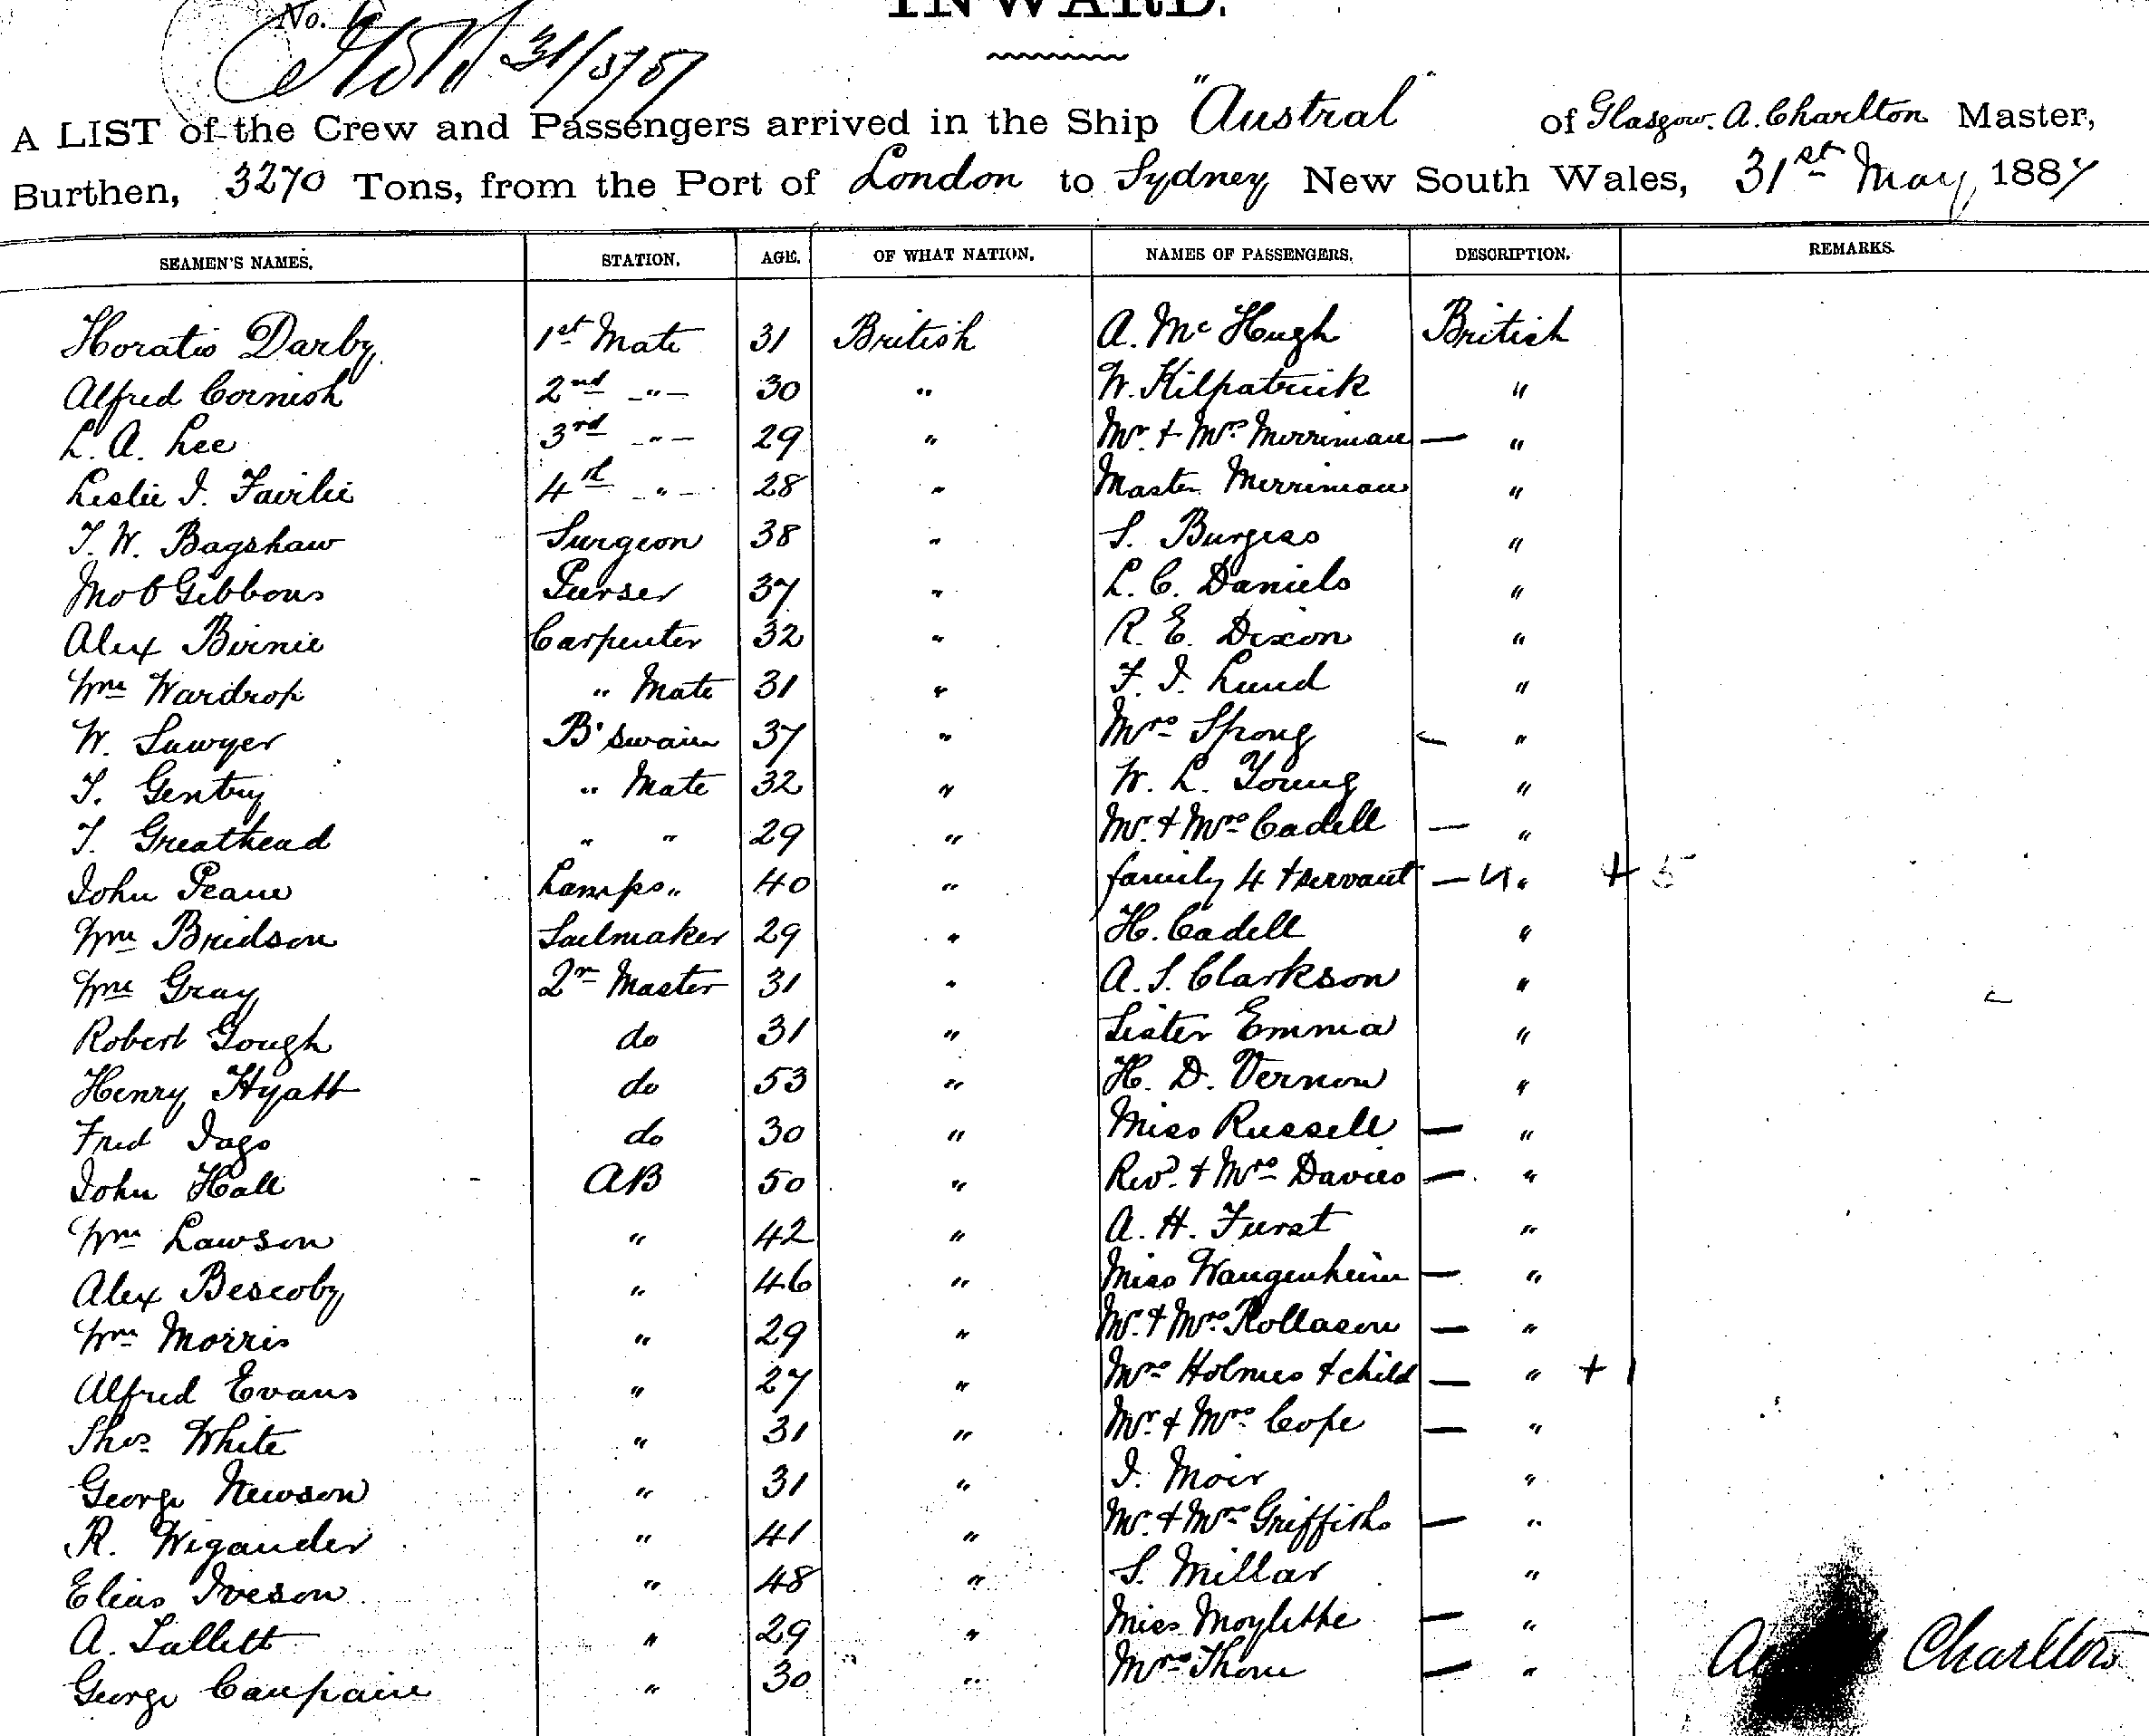 No.
INWARD.
31/5/87
A LIST of the Crew and Passengers arrived in the Ship "Austral" of Glasgow. A. Charlton Master,
Burthen, 3270 Tons, from the Port of London to Sydney, New South Wales, 31st May, 1887
SEAMEN'S NAMES. STATION. AGE. OF WHAT NATION. NAMES OF PASSENGERS. DESCRIPTION. REMARKS.
Horatio Darby 1st Mate 31 British A. McHugh British
Alfred Cornish 2nd -"- 30 " W. Kilpatrick "
L. A. Lee 3rd -"- 29 " Mr. + Mrs Merriman — "
Leslie I. Fairlie 4th -"- 28 " Master Merriman "
T. W. Bagshaw Surgeon 38 " S. Burgess "
Gibbons Purser 37 " L. C. Daniels "
Alex Birnie Carpenter 32 " R. E. Dixon "
Wm Wardrop " Mate 31 " F. I. Lund "
W. Sawyer B'swain 37 " Mrs Spong "
T. Gentry " Mate 32 " W. L. Young "
T. Greathead " " 29 " Mr. + Mrs Cadell — "
John Peane Lamps " 40 " family 4 + servant — 4 " + 5
Wm Bridson Sailmaker 29 " H. Cadell "
Wm Gray 2r Master 31 " A. S. Clarkson "
Robert Gough do 31 " Sister Emma "
Henry Hyatt do 53 " H. D. Vernon "
Fred Jago do 30 " Miss Russell — "
John Hall AB 50 " Revd. + Mrs Davies — "
Wm Lawson " 42 " A. H. Furst "
Alex Bescoby " 46 " Miss Wangenheim — "
Wm Morris " 29 " Mr. + Mrs Rollason — "
Alfred Evans " 27 " Mrs Holmes + child — " + 1
Thos White " 31 " Mr + Mrs Cope — "
George Newson " 31 " I. Moir "
R. Wigander " 41 " Mr. + Mrs Griffiths — "
Elias Iveson " 48 " S. Millar "
A. Tallett " 29 " Miss — "
George Campain " 30 " Mrs Thorn — "
Charlton